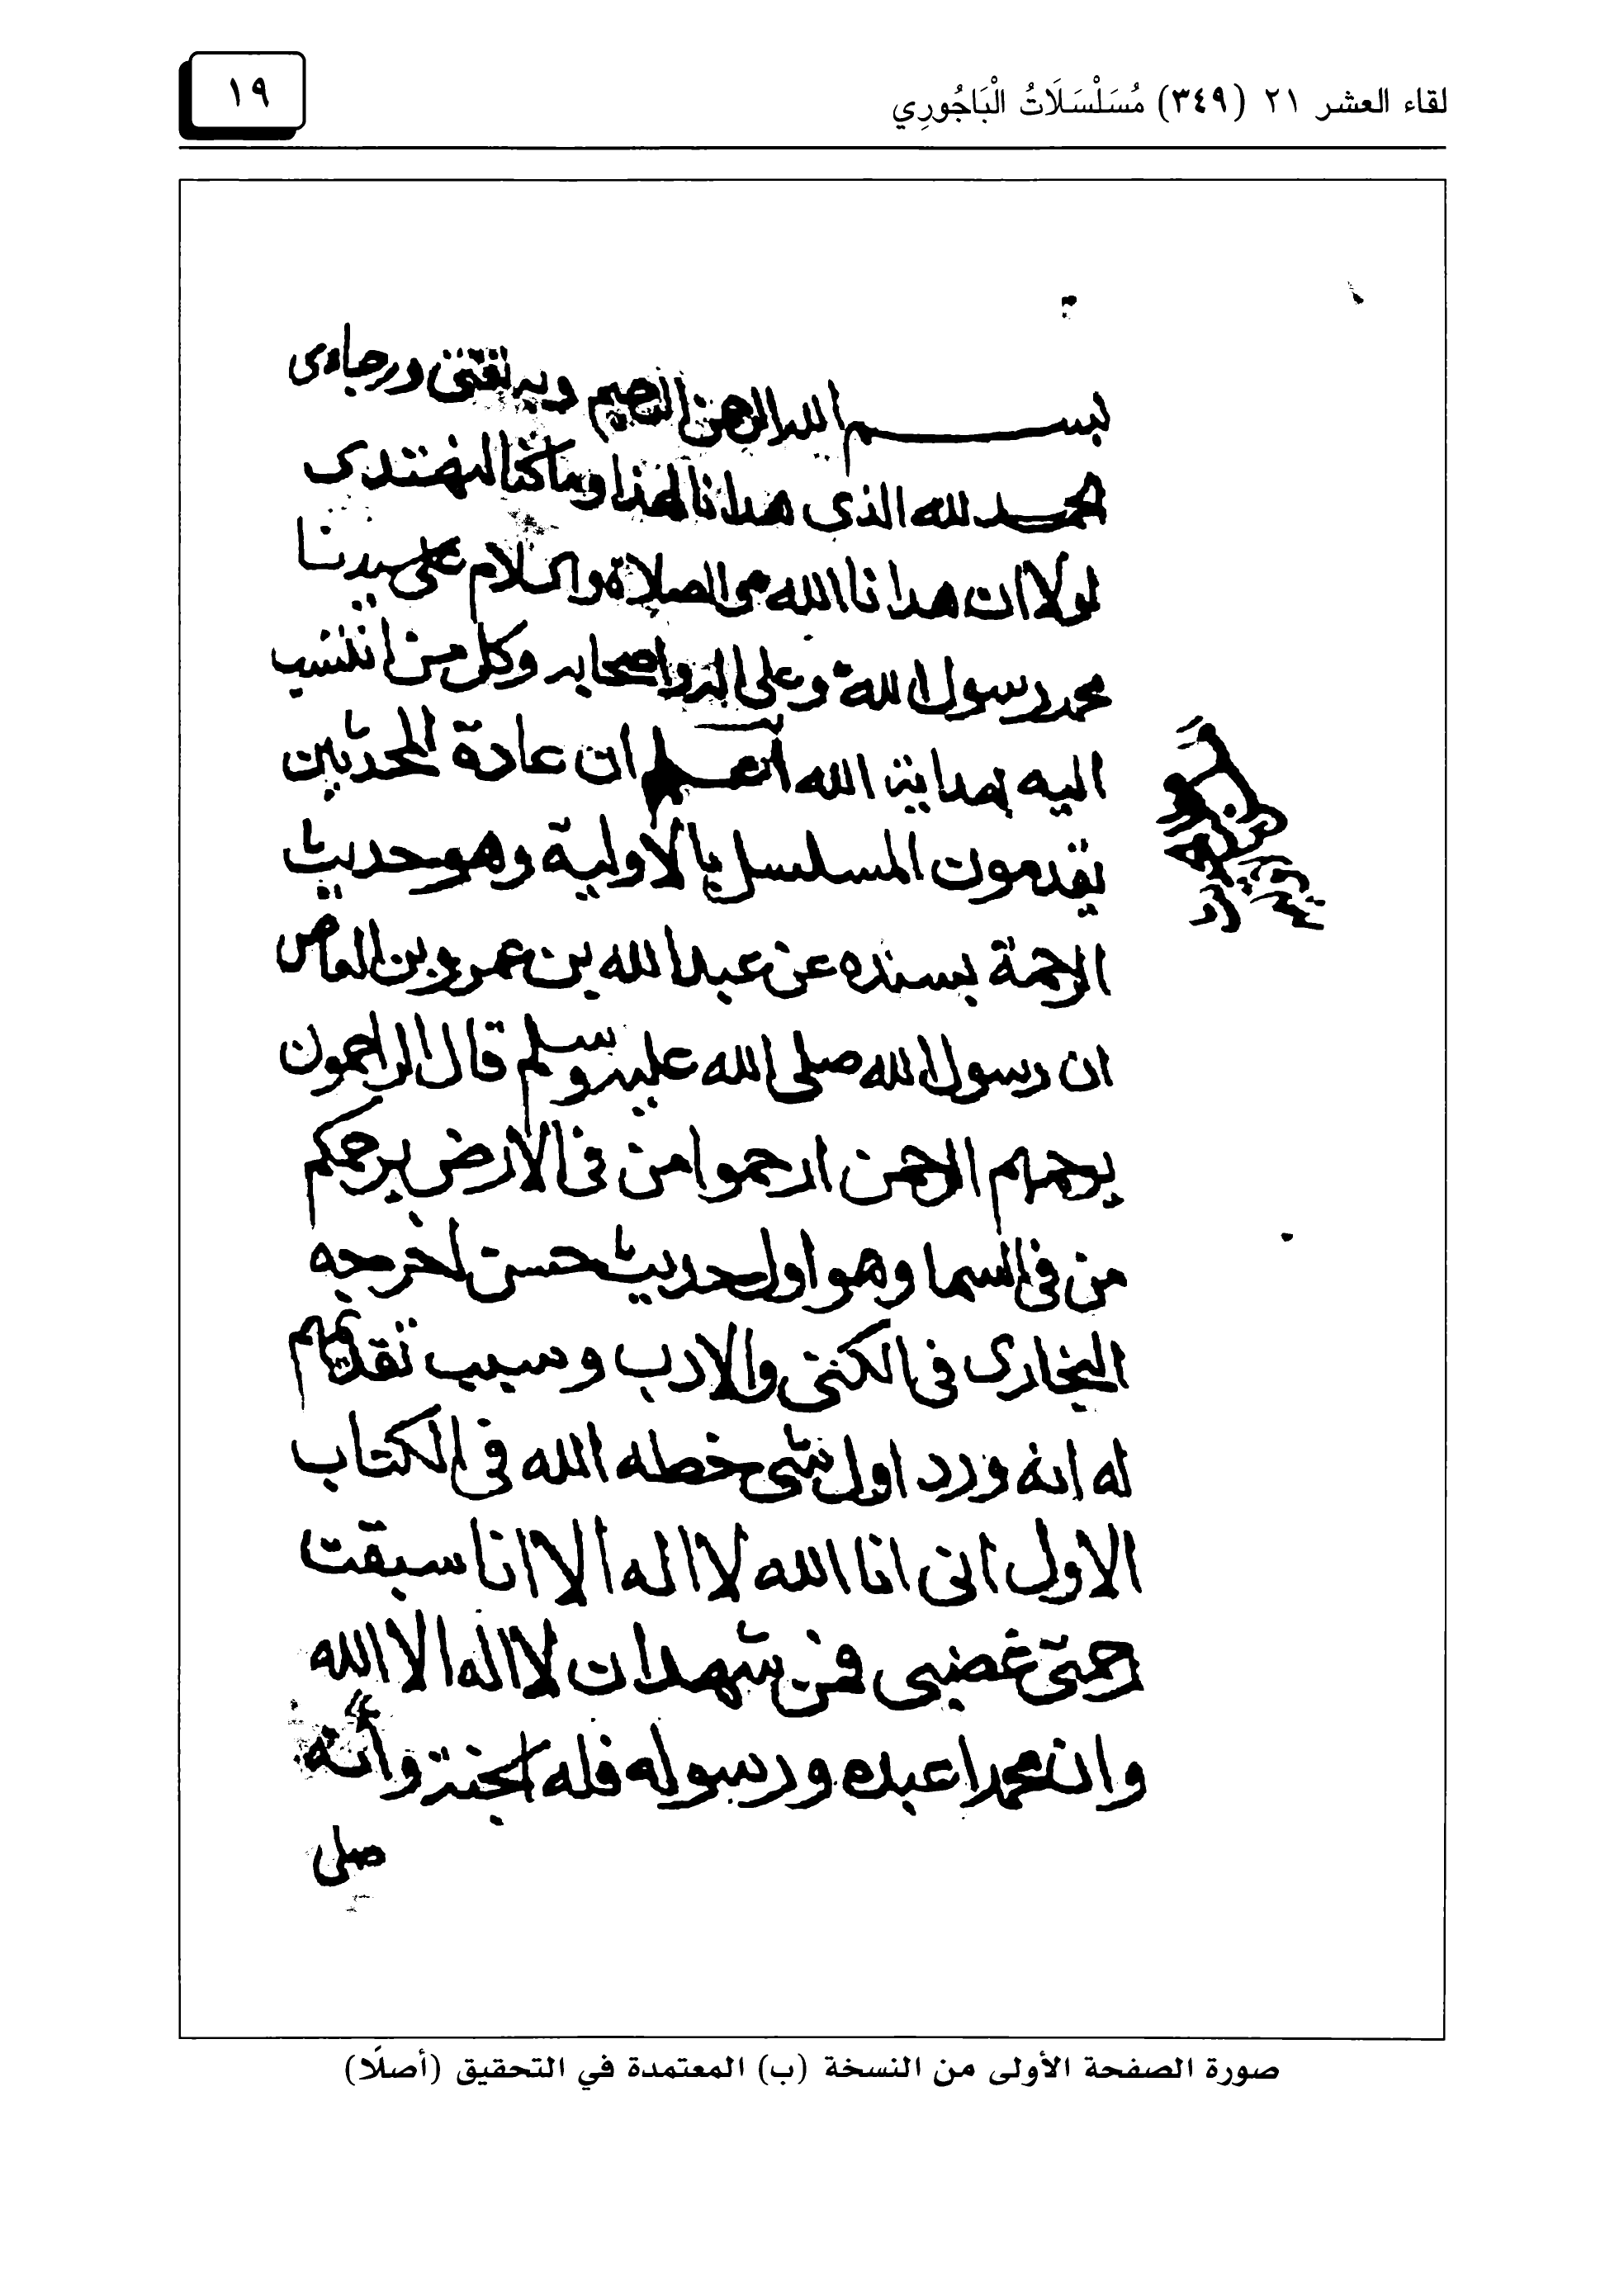 لقاء العشر ٢١ (٣٤٩) مُسَلْسَلَاتُ الْبَاجُورِي
١٩
بسم الله الرحمن الرحيم وبه ثقتى ورجاءى
الحمد لله الذى هدانا لهذا وما كنا لنهتدى
لولا ان هدانا الله والصلاة والسلام على سيدنا
محمد رسول الله وعلى اله واصحابه وكل من انتسب
اليه بهداية الله اعلم ان عادة المحدثين
يقدمون المسلسل بالاولية وهو حديث
الرحمة بسنده عن عبد الله بن عمرو بن العاص
ان رسول الله صلى الله عليه وسلم قال الراحمون
يرحمهم الرحمن ارحموا من فى الارض يرحمكم
من فى السما وهو اول حديث حسن اخرجه
البخارى فى الكنى والادب وسبب تقديمهم
له انه ورد اول شى خطه الله فى الكتاب
الاول انى انا الله لا اله الا انا سبقت
رحمتى غضبى فمن شهد ان لا اله الا الله
وان محمدا عبده ورسوله فله الجنة وأنه
صلى
صورة الصفحة الأولى من النسخة (ب) المعتمدة في التحقيق (أصلًا)